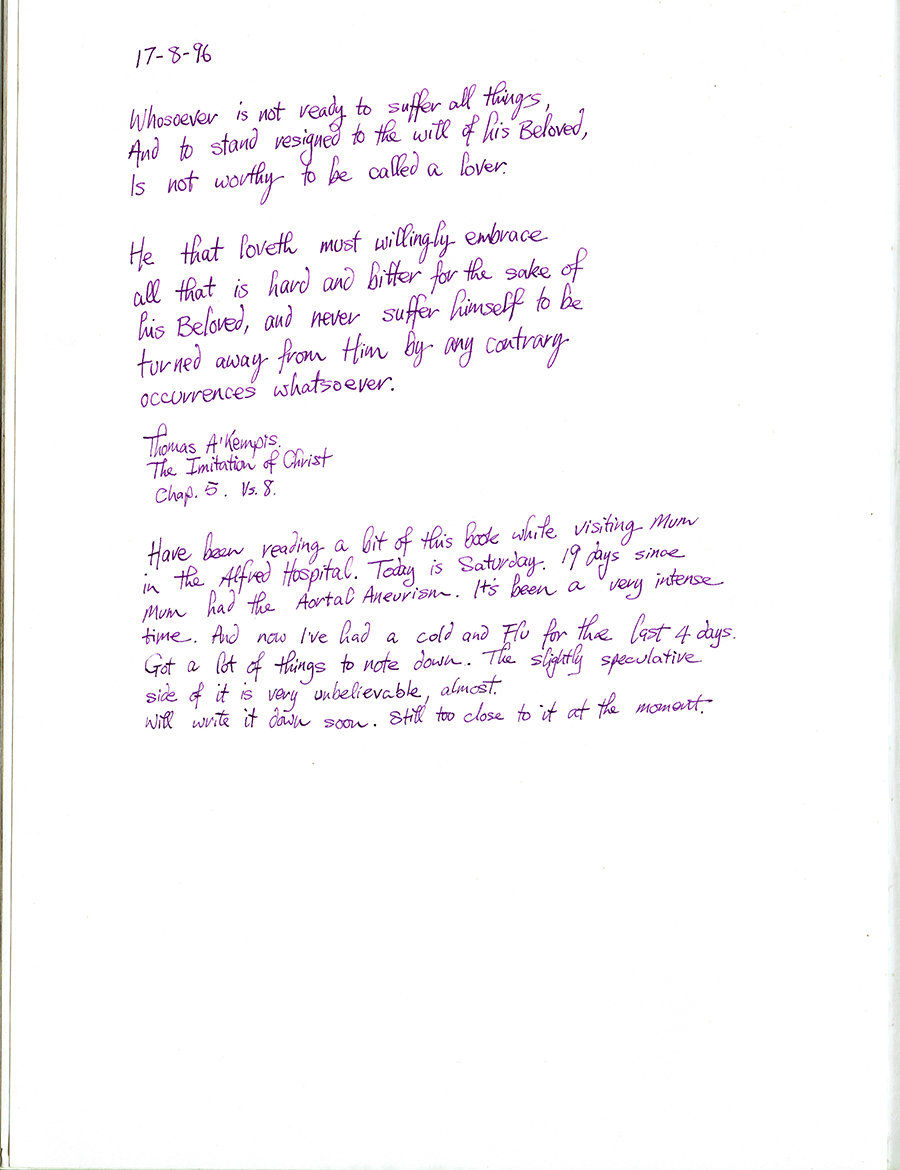 17-8-96
Whosoever is not ready to suffer all things,
And to stand resigned to the will of his Beloved,
Is not worthy to be called a lover.
He that loveth must willingly embrace
all that is hard and bitter for the sake of
his Beloved, and never suffer himself to be
turned away from Him by any contrary
occurrences whatsoever.
Thomas A'Kempis.
The Imitation of Christ
Chap. 5. Vs. 8.
Have been reading a bit of this book while visiting Mum
in the Alfred Hospital. Today is Saturday. 19 days since
Mum had the Aortal Aneurism. It's been a very intense
time. And now I've had a cold and Flu for the last 4 days.
Got a lot of things to note down. The slightly speculative
side of it is very unbelievable, almost.
Will write it down soon. Still too close to it at the moment.